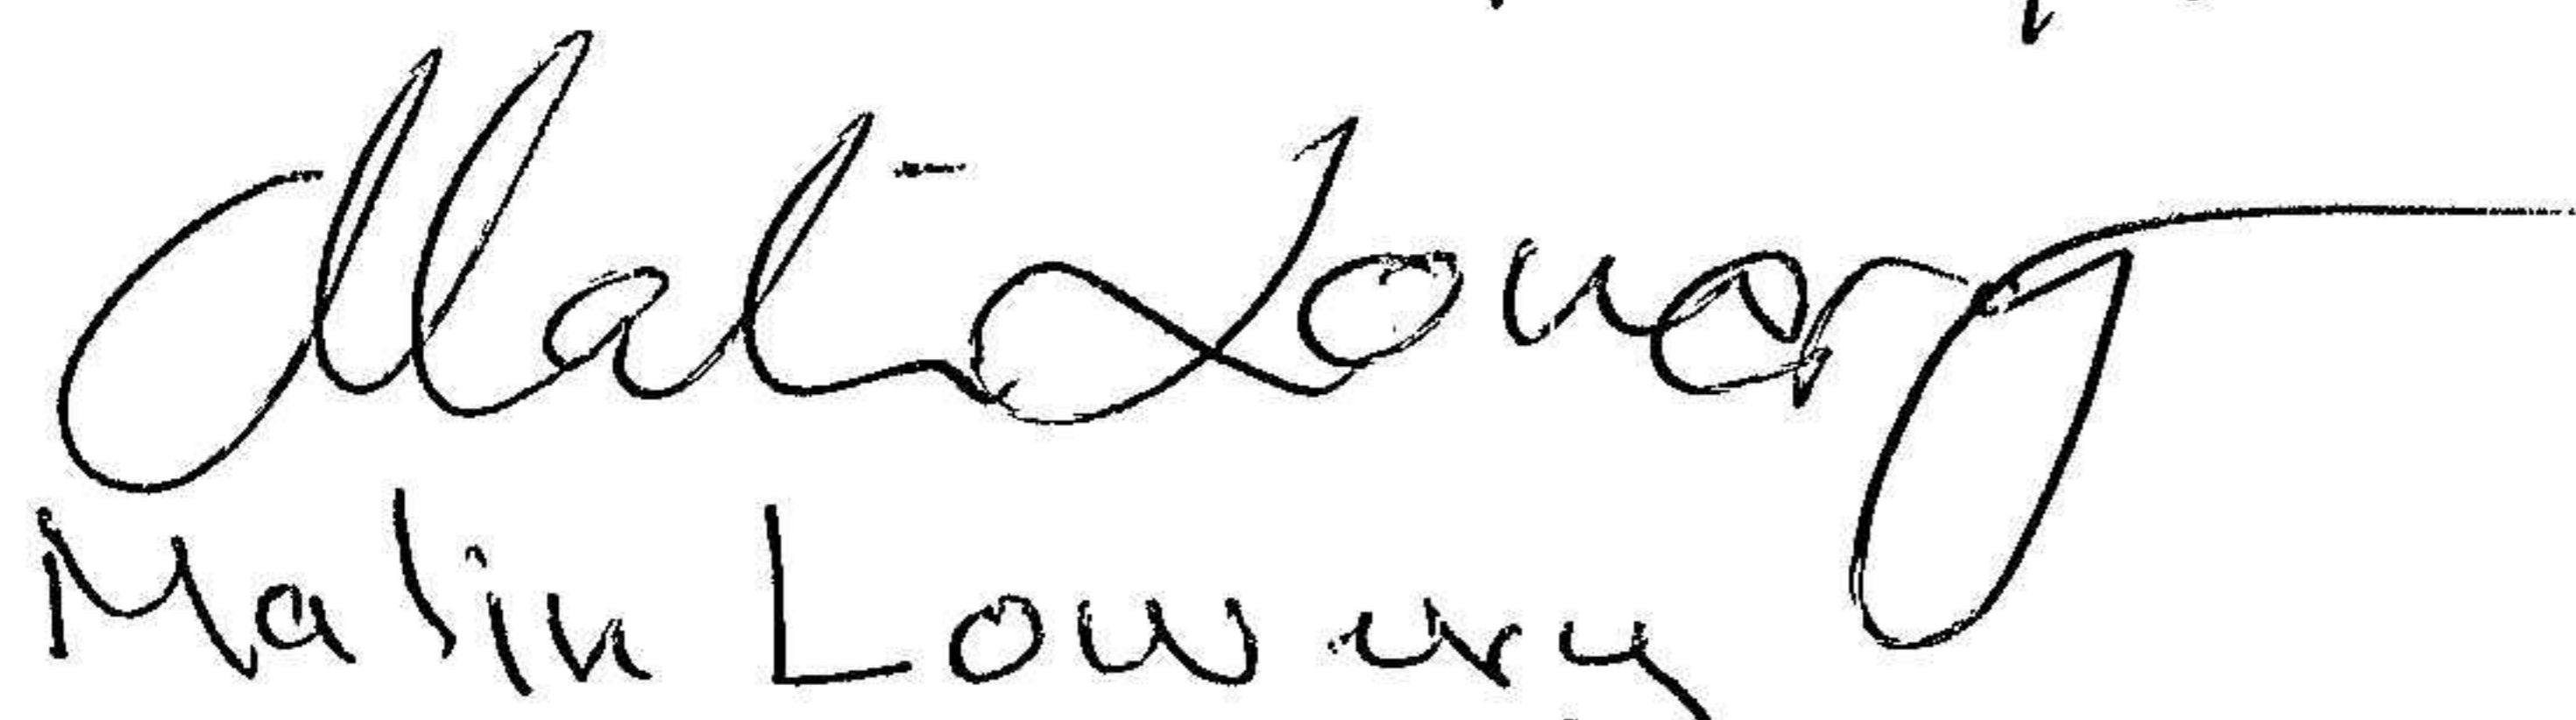 Malin Lowery
Malin Lowery